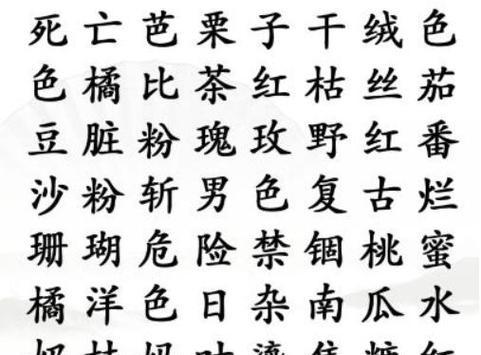 死亡芭栗子干绒色
色橘比茶红枯丝茄
豆脏粉瑰玫野红番
沙粉斩男色复古烂
珊瑚危险禁锢桃蜜
橘洋色日杂南瓜水